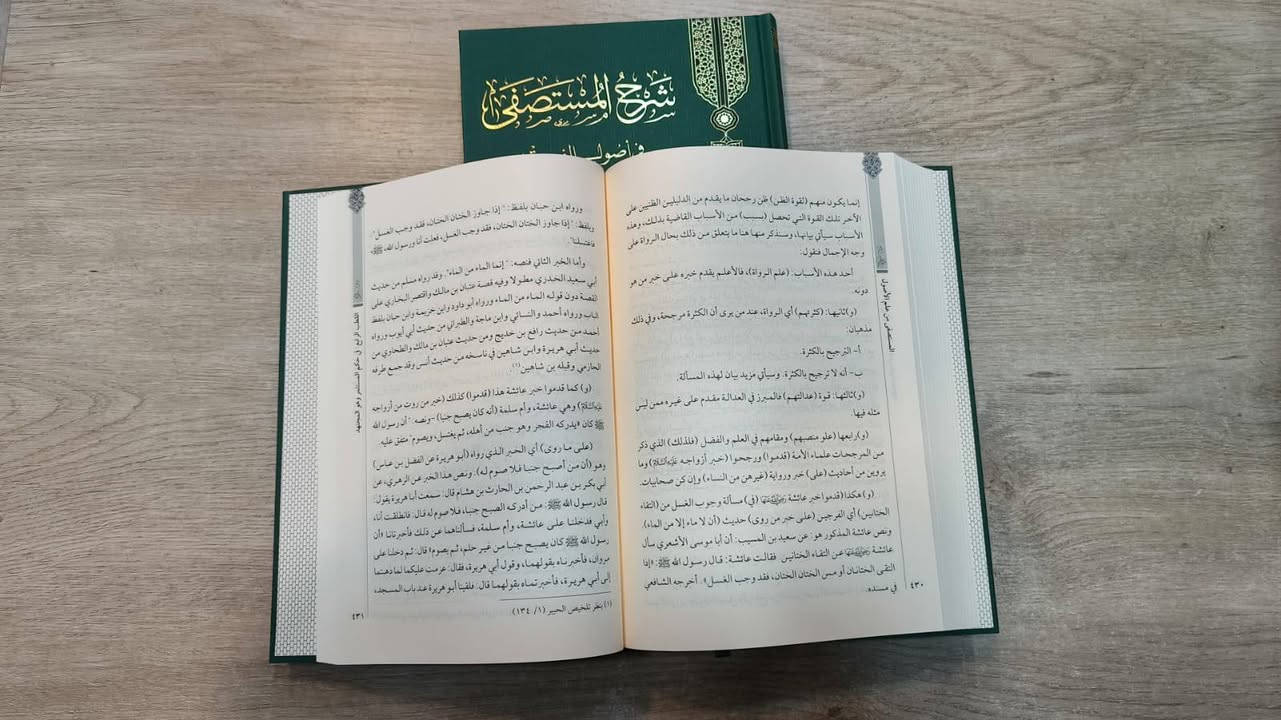 شَرْحُ المُسْتَصْفَى
في أصول
المستصفى من علم الأصول
إنما يكون منهم (لقوة الظن) ظن رجحان ما يقدم من الدليلين الظنيين على
الآخر تلك القوة التي تحصل (بسبب) من الأسباب القاضية بذلك، وهذه
الأسباب سيأتي بيانها، وسنذكر منها هنا ما يتعلق من ذلك بحال الرواة على
وجه الإجمال فنقول:
أحد هذه الأسباب: (علم الرواة)، فالأعلم يقدم خبره على خبر من هو
دونه.
(و)ثانيها: (كثرتهم) أي الرواة، عند من يرى أن الكثرة مرجحة، وفي ذلك
مذهبان:
أ- الترجيح بالكثرة.
ب- أنه لا ترجيح بالكثرة. وسيأتي مزيد بيان لهذه المسألة.
(و)ثالثها: قوة (عدالتهم) فالمبرز في العدالة مقدم على غيره ممن ليس
مثله فيها.
(و)رابعها (علو منصبهم) ومقامهم في العلم والفضل (فلذلك) الذي ذكر
من المرجحات علماء الأمة (قدموا) ورجحوا (خبر أزواجه عليه السلام) وما
يروين من أحاديث (على) خبر ورواية (غيرهن من النساء) وإن كن صحابيات.
(و)هكذا (قدموا خبر عائشة رضي الله عنها (في) مسألة وجوب الغسل من (التقاء
الختانين) أي الفرجين (على خبر من روى) حديث (أن لا ماء إلا من الماء).
ونص عائشة المذكور هو: عن سعيد بن المسيب: أن أبا موسى الأشعري سأل
عائشة رضي الله عنها عن التقاء الختانين فقالت عائشة: قال رسول الله ﷺ: «إذا
التقى الختانان أو مس الختان الختان، فقد وجب الغسل». أخرجه الشافعي
في مسنده.
٤٣٠
القطب الرابع: في حكم المستثمر وهو المجتهد
ورواه ابن حبان بلفظ: "إذا جاوز الختان الختان، فقد وجب الغسل".
وبلفظ: "إذا جاوز الختان الختان، فقد وجب الغسل، فعلت أنا ورسول الله، ﷺ
فاغتسلنا".
وأما الخبر الثاني فنصه: "إنما الماء من الماء". وقد رواه مسلم من حديث
أبي سعيد الخدري مطولا وفيه قصة عتبان بن مالك واقتصر البخاري على
القصة دون قوله الماء من الماء ورواه أبو داود وابن خزيمة وابن حبان بلفظ
الباب ورواه أحمد والنسائي وابن ماجة والطبراني من حديث أبي أيوب ورواه
أحمد من حديث رافع بن خديج ومن حديث عتبان بن مالك والطحاوي من
حديث أبي هريرة وابن شاهين في ناسخه من حديث أنس وقد جمع طرقه
الحازمي وقبله بن شاهين(١).
(و) كما قدموا خبر عائشة هذا (قدموا) كذلك (خبر من روت من أزواجه
عليه السلام) وهي عائشة، وأم سلمة (أنه كان يصبح جنبا) -ونصه: "أن رسول الله
ﷺ كان «يدركه الفجر وهو جنب من أهله، ثم يغتسل، ويصوم" متفق عليه
(على ما روى) أي الخبر الذي رواه (أبو هريرة عن الفضل بن عباس)
وهو (أن من أصبح جنبا فلا صوم له). ونص هذا الخبر عن الزهري، عن
أبي بكر بن عبد الرحمن بن الحارث بن هشام قال: سمعت أبا هريرة يقول:
قال رسول الله ﷺ: من أدركه الصبح جنبا، فلا صوم له قال: فانطلقت أنا،
وأبي فدخلنا على عائشة، وأم سلمة، فسألناهما عن ذلك فأخبرتانا «أن
رسول الله ﷺ كان يصبح جنبا من غير حلم، ثم يصوم» قال: ثم دخلنا على
مروان، فأخبرناه بقولهما، وقول أبي هريرة، فقال: عزمت عليكما لما ذهبتما
إلى أبي هريرة، فأخبرتماه بقولهما قال: فلقينا أبو هريرة عند باب المسجد،
(١) ينظر تلخيص الحبير (١/ ١٣٤)
٤٣١